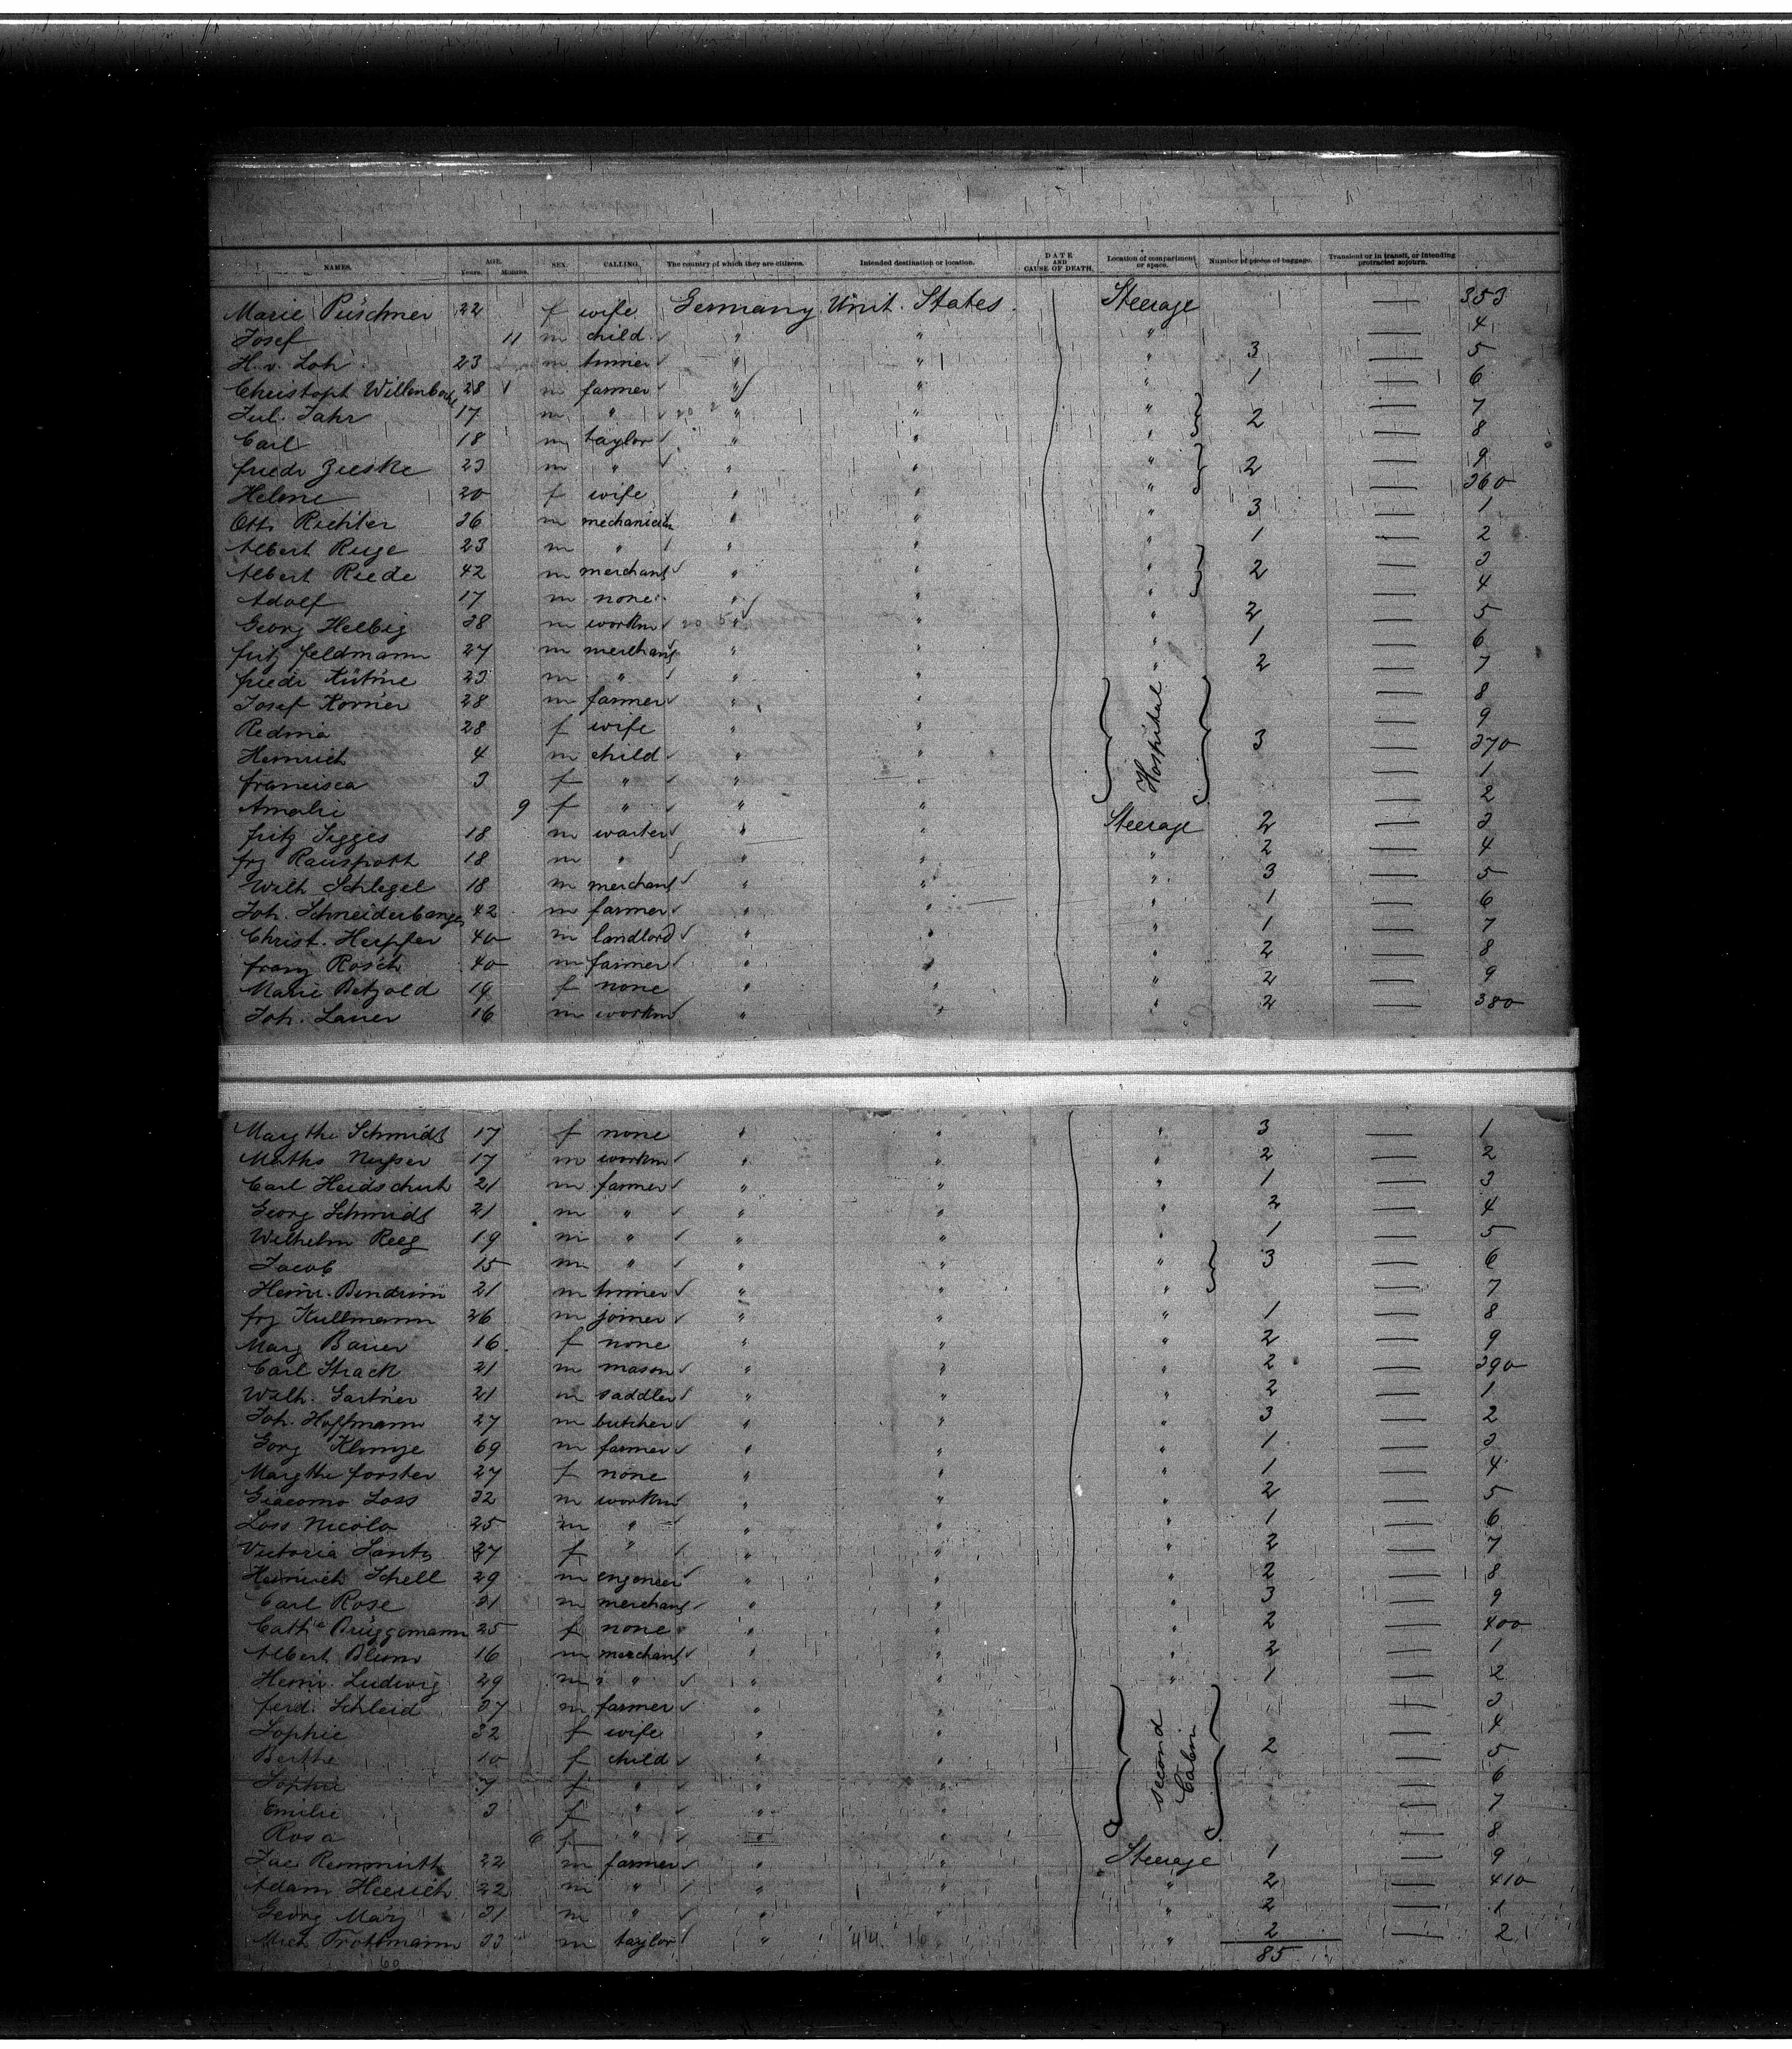 NAMES. AGE. Years. Months. SEX. CALLING. The country of which they are citizens. Intended destination or location. DATE AND CAUSE OF DEATH. Location of compartment or space. Number of pieces of baggage. Transient or in transit, or intending protracted sojourn.
Marie Püschner 22 f wife Germany Unit. States. Steerage — 353
Josef 11 m child " " " — 4
H. v. Loh 23 m tinner " " " 3 — 5
Christoph Willenbach 28 m farmer " " " 1 — 6
Jul. Jahr 17 m " " " " 2 — 7
Carl 18 m taylor " " " — 8
friedr Zieske 23 m " " " " 2 — 9
Helene 20 f wife " " " — 360
Otto Richter 36 m mechanician " " " 3 — 1
Albert Ruge 23 m " " " " 1 — 2
Albert Riede 42 m merchant " " " 2 — 3
Adolf 17 m none " " " — 4
Georg Helbig 38 m workm " " " 2 — 5
fritz feldmann 27 m merchant " " " 1 — 6
friedr Kühne 23 m " " " " 2 — 7
Josef Körner 28 m farmer " " Hospital — 8
Redmia 28 f wife " " — 9
Heinrich 4 m child " " 3 — 370
francisca 3 f " " " — 1
Amalie 9 f " " " — 2
fritz Sigges 18 m waiter " " Steerage 2 — 3
frz Rauspoth 18 m " " " " 2 — 4
Wilh Schlegel 18 m merchant " " " 3 — 5
Joh. Schneiderbanger 42 m farmer " " " 1 — 6
Christ. Herpfer 40 m landlord " " " 1 — 7
franz Rosch 40 m farmer " " " 2 — 8
Marie Betzold 19 f none " " " 2 — 9
Joh. Lauer 16 m workm " " " 2 — 380
Margthe Schmidt 17 f none " " " 3 — 1
Maths 17 m workm " " " 2 — 2
Carl Heidschuh 21 m farmer " " " 1 — 3
Georg Schmidt 21 m " " " " 2 — 4
Wilhelm Reeg 19 m " " " " 1 — 5
Jacob 15 m " " " " 3 — 6
Heinr. Bendrim 21 m tinner " " " — 7
frz Kullmann 26 m joiner " " " 1 — 8
Marg Bauer 16 f none " " " 2 — 9
Carl Strack 21 m mason " " " 2 — 390
Wilh. Gartner 21 m saddler " " " 2 — 1
Joh. Hoffmann 27 m butcher " " " 3 — 2
Gorg Klunge 69 m farmer " " " 1 — 3
Margthe forster 27 f none " " " 1 — 4
Giacomo Loss 32 m workm " " " 2 — 5
Loss Nicola 25 m " " " " 1 — 6
Victoria Lantz 27 f " " " " 2 — 7
Heinrich Schell 29 m engeneer " " " 2 — 8
Carl Rose 21 m merchant " " " 3 — 9
Cathe Brüggemann 25 f none " " " 2 — 400
Albert Blum 16 m merchant " " " 2 — 1
Heinr. Ludwig 29 m " " " " 1 — 2
ferd. Schleid 37 m farmer " " second Cabin — 3
Sophie 32 f wife " " — 4
Berthe 10 f child " " 2 — 5
Sophie 7 f " " " — 6
Emilie 3 f " " " — 7
Rosa 6 f " " " — 8
Jac Remmuth 22 m farmer " " Steerage 1 — 9
Adam Heerich 22 m " " " " 2 — 410
Georg März 31 m " " " " 2 — 1
Mich Trottmann 33 m taylor " 44 16 " 2 — 2
60 85